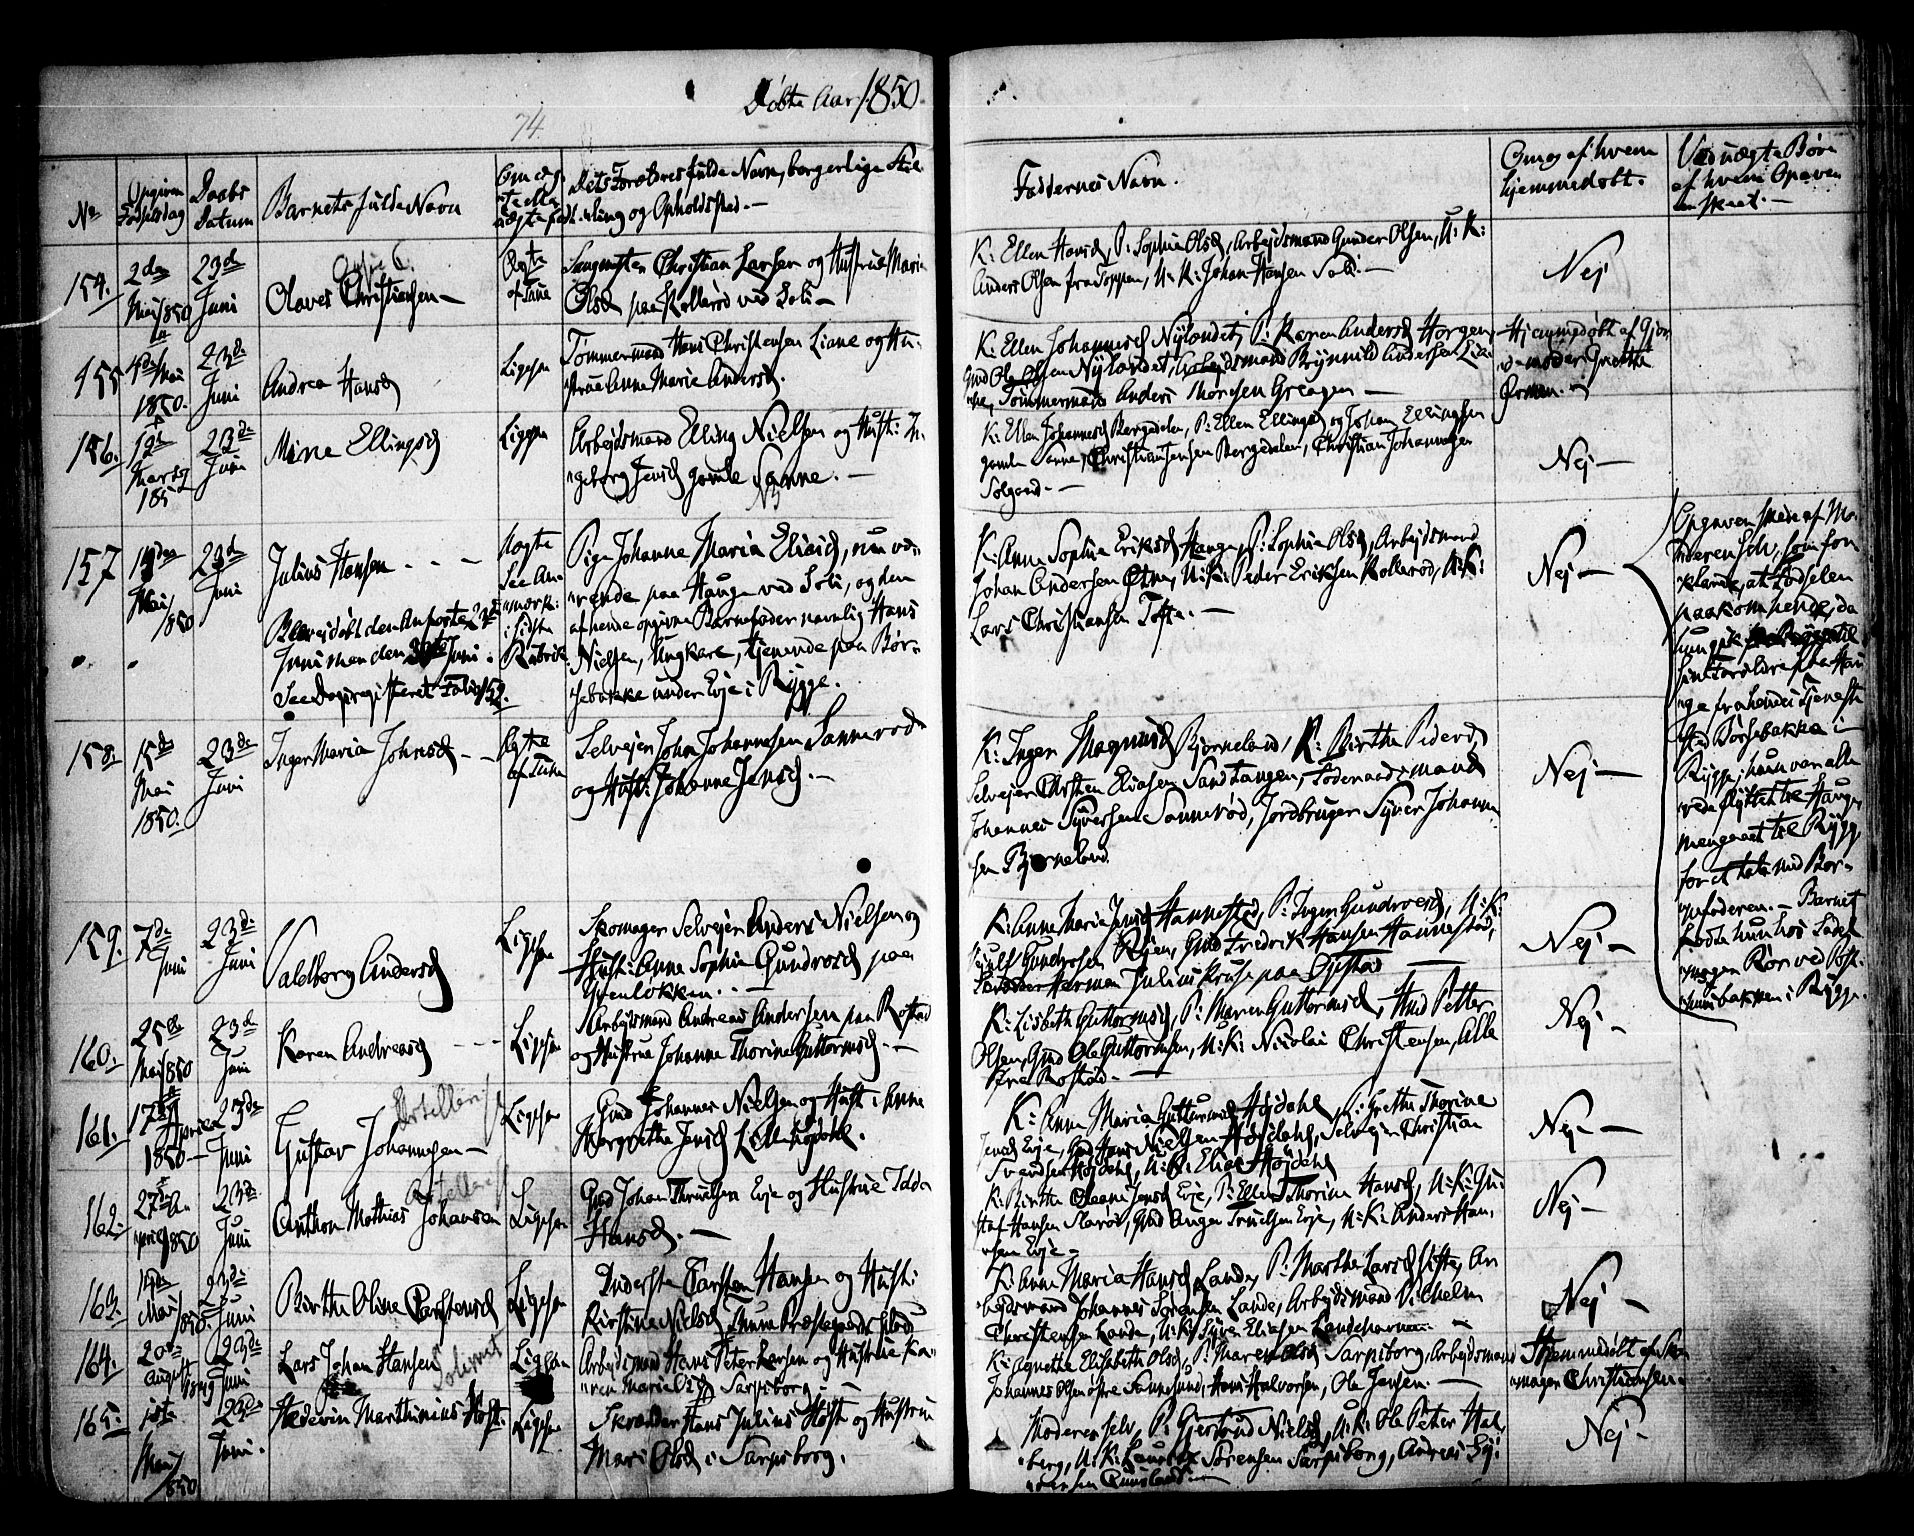 Døbte Aar 1850.
74.
No
Opgiven Fødselsdag
Daabs Datum
Barnets fulde Navn
Om ægte eller uægte født
Dets Forældres fulde Navn, borgerlige Stilling og Opholdssted. —
Faddernes Navn.
Om og af hvem hjemmedøbt.
Ved uægte Børn af hvem Opgaven er skeet. —
154.
2den Mai 1850
23de Juni
Olaves Christiansen —
Ægte
Christian Larsen og Hustrue Marie
Olsd paa Kollerød ved Soli —
K: Ellen Hansd, P: Sophie Olsd, Arbejdsmand Gunder Olsen, U: K:
Anders Olsen fra Toppen, U: K: Johan Hansen Soli. —
Nej
155
Mai 1850.
23de Juni
Andrea Hansd
Ligesaa
Tømmermand Hans Christensen Liane og Hu-
strue Anne Marie Andersd.
K: Ellen Johannesd Nylandet, P: Karen Andersd Horgen,
Gmd Ole Olsen Nylandet, Arbejdsmand Brynnild Andersen Lia-
ne, Tømmermand Anders Thorsen Greagen —
Hjemmedøbt af Gjor-
demoder Grethe
156.
19de Marts 185
23de Juni
Mine Ellingsd
Ligesaa
Arbejdsmand Elling Nielsen og Hust: In-
geborg Jensd gamle Sanne. —
K: Ellen Johannesd Bergedalen, P: Ellen Ellingsd og Johan Ellingsen
gamle Sanne, Christian Jensen Bergedalen, Christian Johannesen
Solgaard. —
Nej —
157
Mai 1850
23de Juni
Julius Hansen - - -
Uægte
See An-
mærk:
i sidste
Rubrik
Pige Johanne Maria Eliasd, nu væ-
rende paa Hauge ved Soli, og den
af hende opgivne Barnefader navnlig Hans
Nielsen, Ungkarl, tjenende paa Bør-
sebakke under Evje i Rygge.
Juni men den 30te Juni.
See Dagsregisteret Folio 152.
K: Anne Sophie Eriksd Hauge, P: Sophie Olsd, Arbejdsmand
Johan Andersen Østen, U: K: Peder Eriksen Kollerød, U: K:
Lars Christiansen Tofte. —
Nej —
Opgaven skede af Mo-
deren selv, som for-
klarede, at Fødselen
paakom hende, da
hun gik
sine Forældre paa Hau-
ge fra hendes Tjeneste-
sted Børsebakke i
Rygge, hun var alle-
rede flyttet til Hauge,
men gaaet til Rygge
for at tale med Bar-
nefaderen. — Barnet
fødte hun hos Sadel-
mager Rør ved Post-
huusbakken i Rygge.
158.
15de Mai 1850.
23de Juni
Inger Maria Johnsd - -
Ægte
Selvejer John Johannesen Sannerød
og Hust: Johanne Jensd. —
K: Inger Magnusd Bjørneland, P: Birthe Pedersd
Selvejer Christen Eliasen Sandtangen, Føderaadsmand
Johannes Syversen Sannerød, Jordbruger Syver Johanne-
sen Bjørneland.
Nej —
159.
7de Juni
23de Juni
Valdborg Andersd
Ligesaa
Skomager Selvejer Anders Nielsen og
Hust: Anne Sophie Gundrosd paa
Evenløkken. - -
K: Anne Maria Jensd Hannestad, P: Inger Gundrosd, U: K:
Gundrosen Revsen, Gmd Fredrik Hansen Hannestad,
Herman Julius Kruse paa Opstad —
Nej —
160.
25de Mai 1850
23de Juni
Karen Andreasd - - -
Ligesaa
Arbejdsmand Andreas Andersen paa Rostad
og Hustrue Johanne Thorine Guttormsd. —
K: Lisbeth Guttormsd, P: Maren Guttormsd, Gmd Petter
Olsen, Gmd Ole Guttormsen, U: K: Nicolai Christensen, Alle
fra Rostad. —
Nej —
161.
17de April 1850 —
23de Juni
Gustav Johannesen —
Ligesaa
Gmd Johannes Nielsen og Hust: Anne
Margrethe Jensd Lille Højdahl.
K: Anne Maria Guttormsd Højdahl, P: Grethe Thorine
Jensd Evje, Gmd Hans Nielsen Højdahl, Selvejer Christian
Svendsen Højdahl, U: K: Elias Højdahl
Nej —
162.
27de April 1850
23de Juni
Anthon Mathias Johansen
Ligesaa
Gmd Johan Thruelsen Evje og Hustrue Idda
Hansd. —
K: Birthe Oleane Jensd Evje, P: Ellen Thorine Hansd, U: K: Gu-
staf Hansen Sla­røi, Gmd Anger Truelsen Evje, U: K: Anders Han-
sen Evje —
Nej —
163.
Mai 1850
23de Juni
Birthe Oline Carstensd
Ligesaa
Inderste Carsten Hansen og Hust:
Kirstine Nielsd Thune Præstegaards Eied
K: Anne Maria Hansd Lande, P: Marthe Larsd Gifte, Ar-
bejdsmand Johannes Sørensen Lande, Arbejdsmand Vilhelm
Christensen Lande, U: K: Syver Eliasen Landehavnen. —
Nej —
164.
20de August 1849
23de Juni
Lars Johan Hansen
Ligesaa
Arbejdsmand Hans Peter Larsen og Hustrue Ka-
ren Marie Olsd Sarpsborg. —
K: Agnethe Elisabeth Olsd, P: Maren Olsd Sarpsborg, Arbejdsmand
Johannes Olsen østre Sannesund, Hans Halvorsen, Ole Jensen. —
Hjemmedøbt af Sko-
mager Christiansen.
165.
1ste Mai 1850
23de Juni.
Marthinius Høst
Ligesaa
Skrædder Hans Julius Høst og Hustrue
Mari Olsd i Sarpsborg.
Moderen selv, P: Gjertrud Nielsd, U: K: Ole Peter Hal-
berg, U: K: Sørensen Sarpsborg, Andreas
Nej —